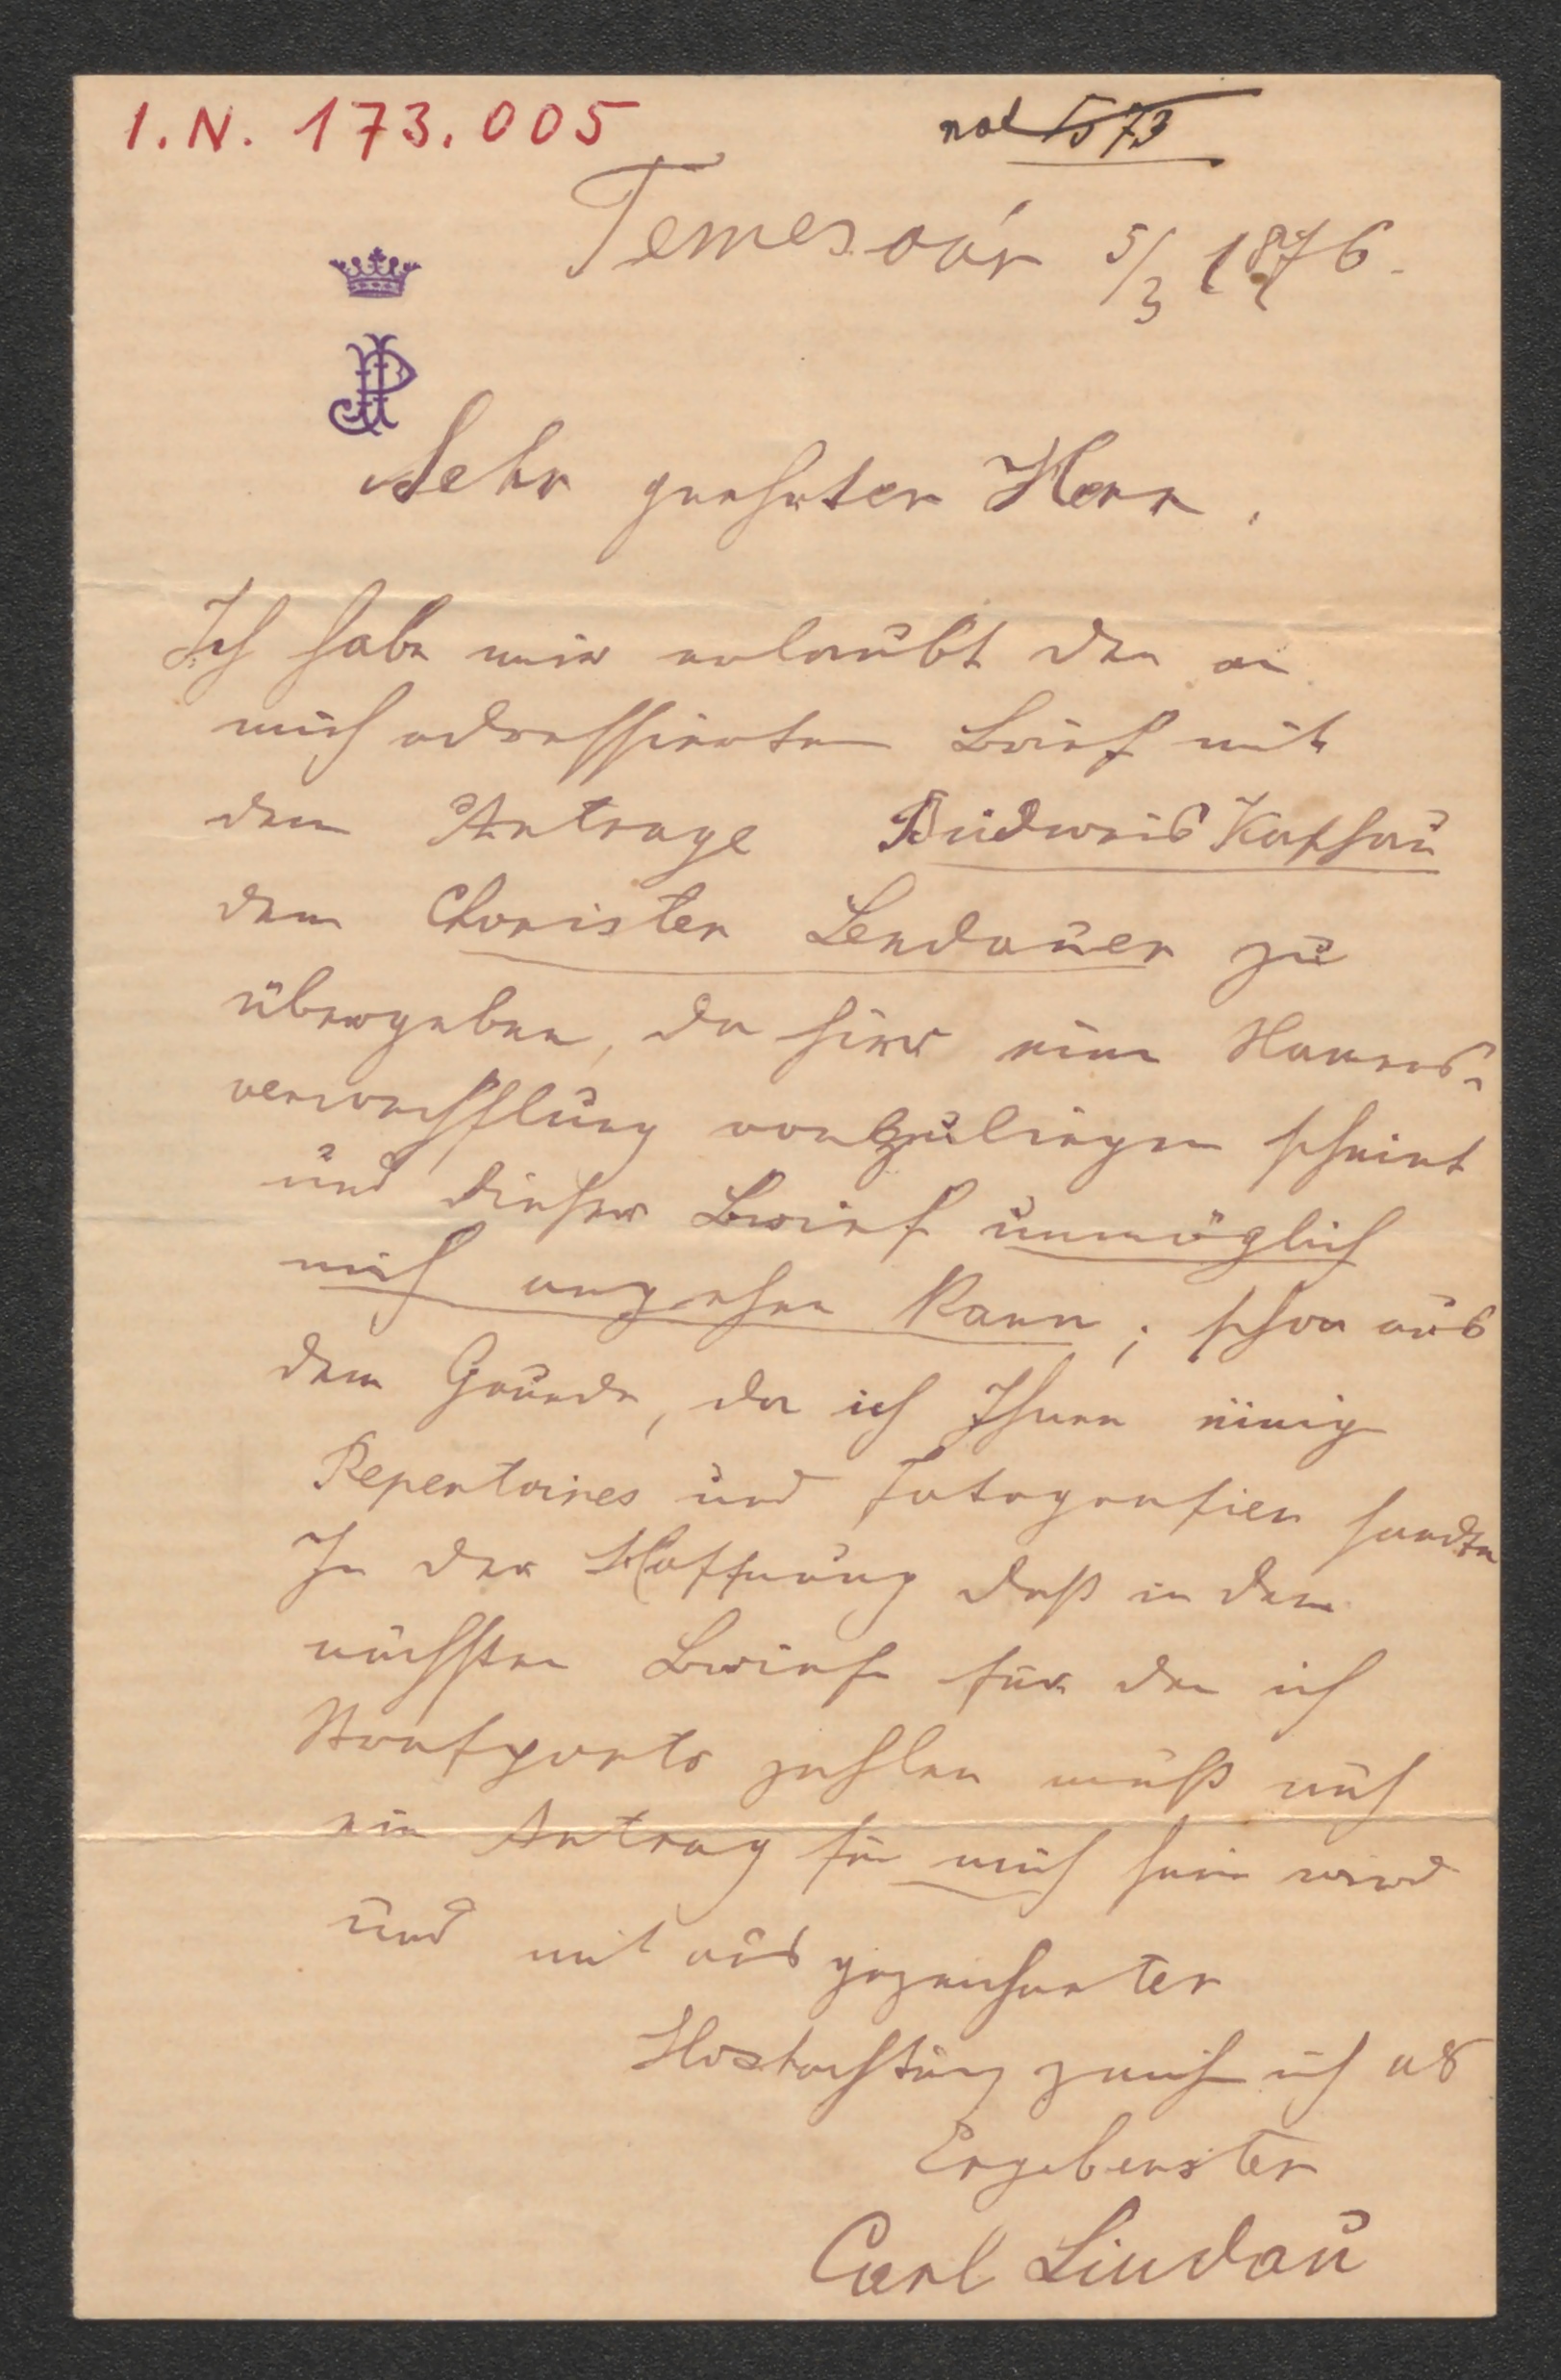 I.N. 173.005
not 1573
Temesvár 5/3 1876.
JP
Sehr geehrter Herr.
Ich habe mir erlaubt den an
mich adressierten Brief mit
dem Antrage Budweis Kaschau
dem Choristen Lendauer zu
übergeben, da hier eine Namens-
verwechslung vorzuliegen scheint
und dieser Brief unmöglich
mich angehen kann; schon aus
dem Grunde, da ich Ihnen einig
Repertoires und Fotografien sandte
In der Hoffnung daß in dem
nächsten Briefe für den ich
Strafporto zahlen muß auch
ein Antrag für mich sein wird
und mit ausgezeichneter
Hochachtung zeichne ich als
Ergebenster
Carl Lindau